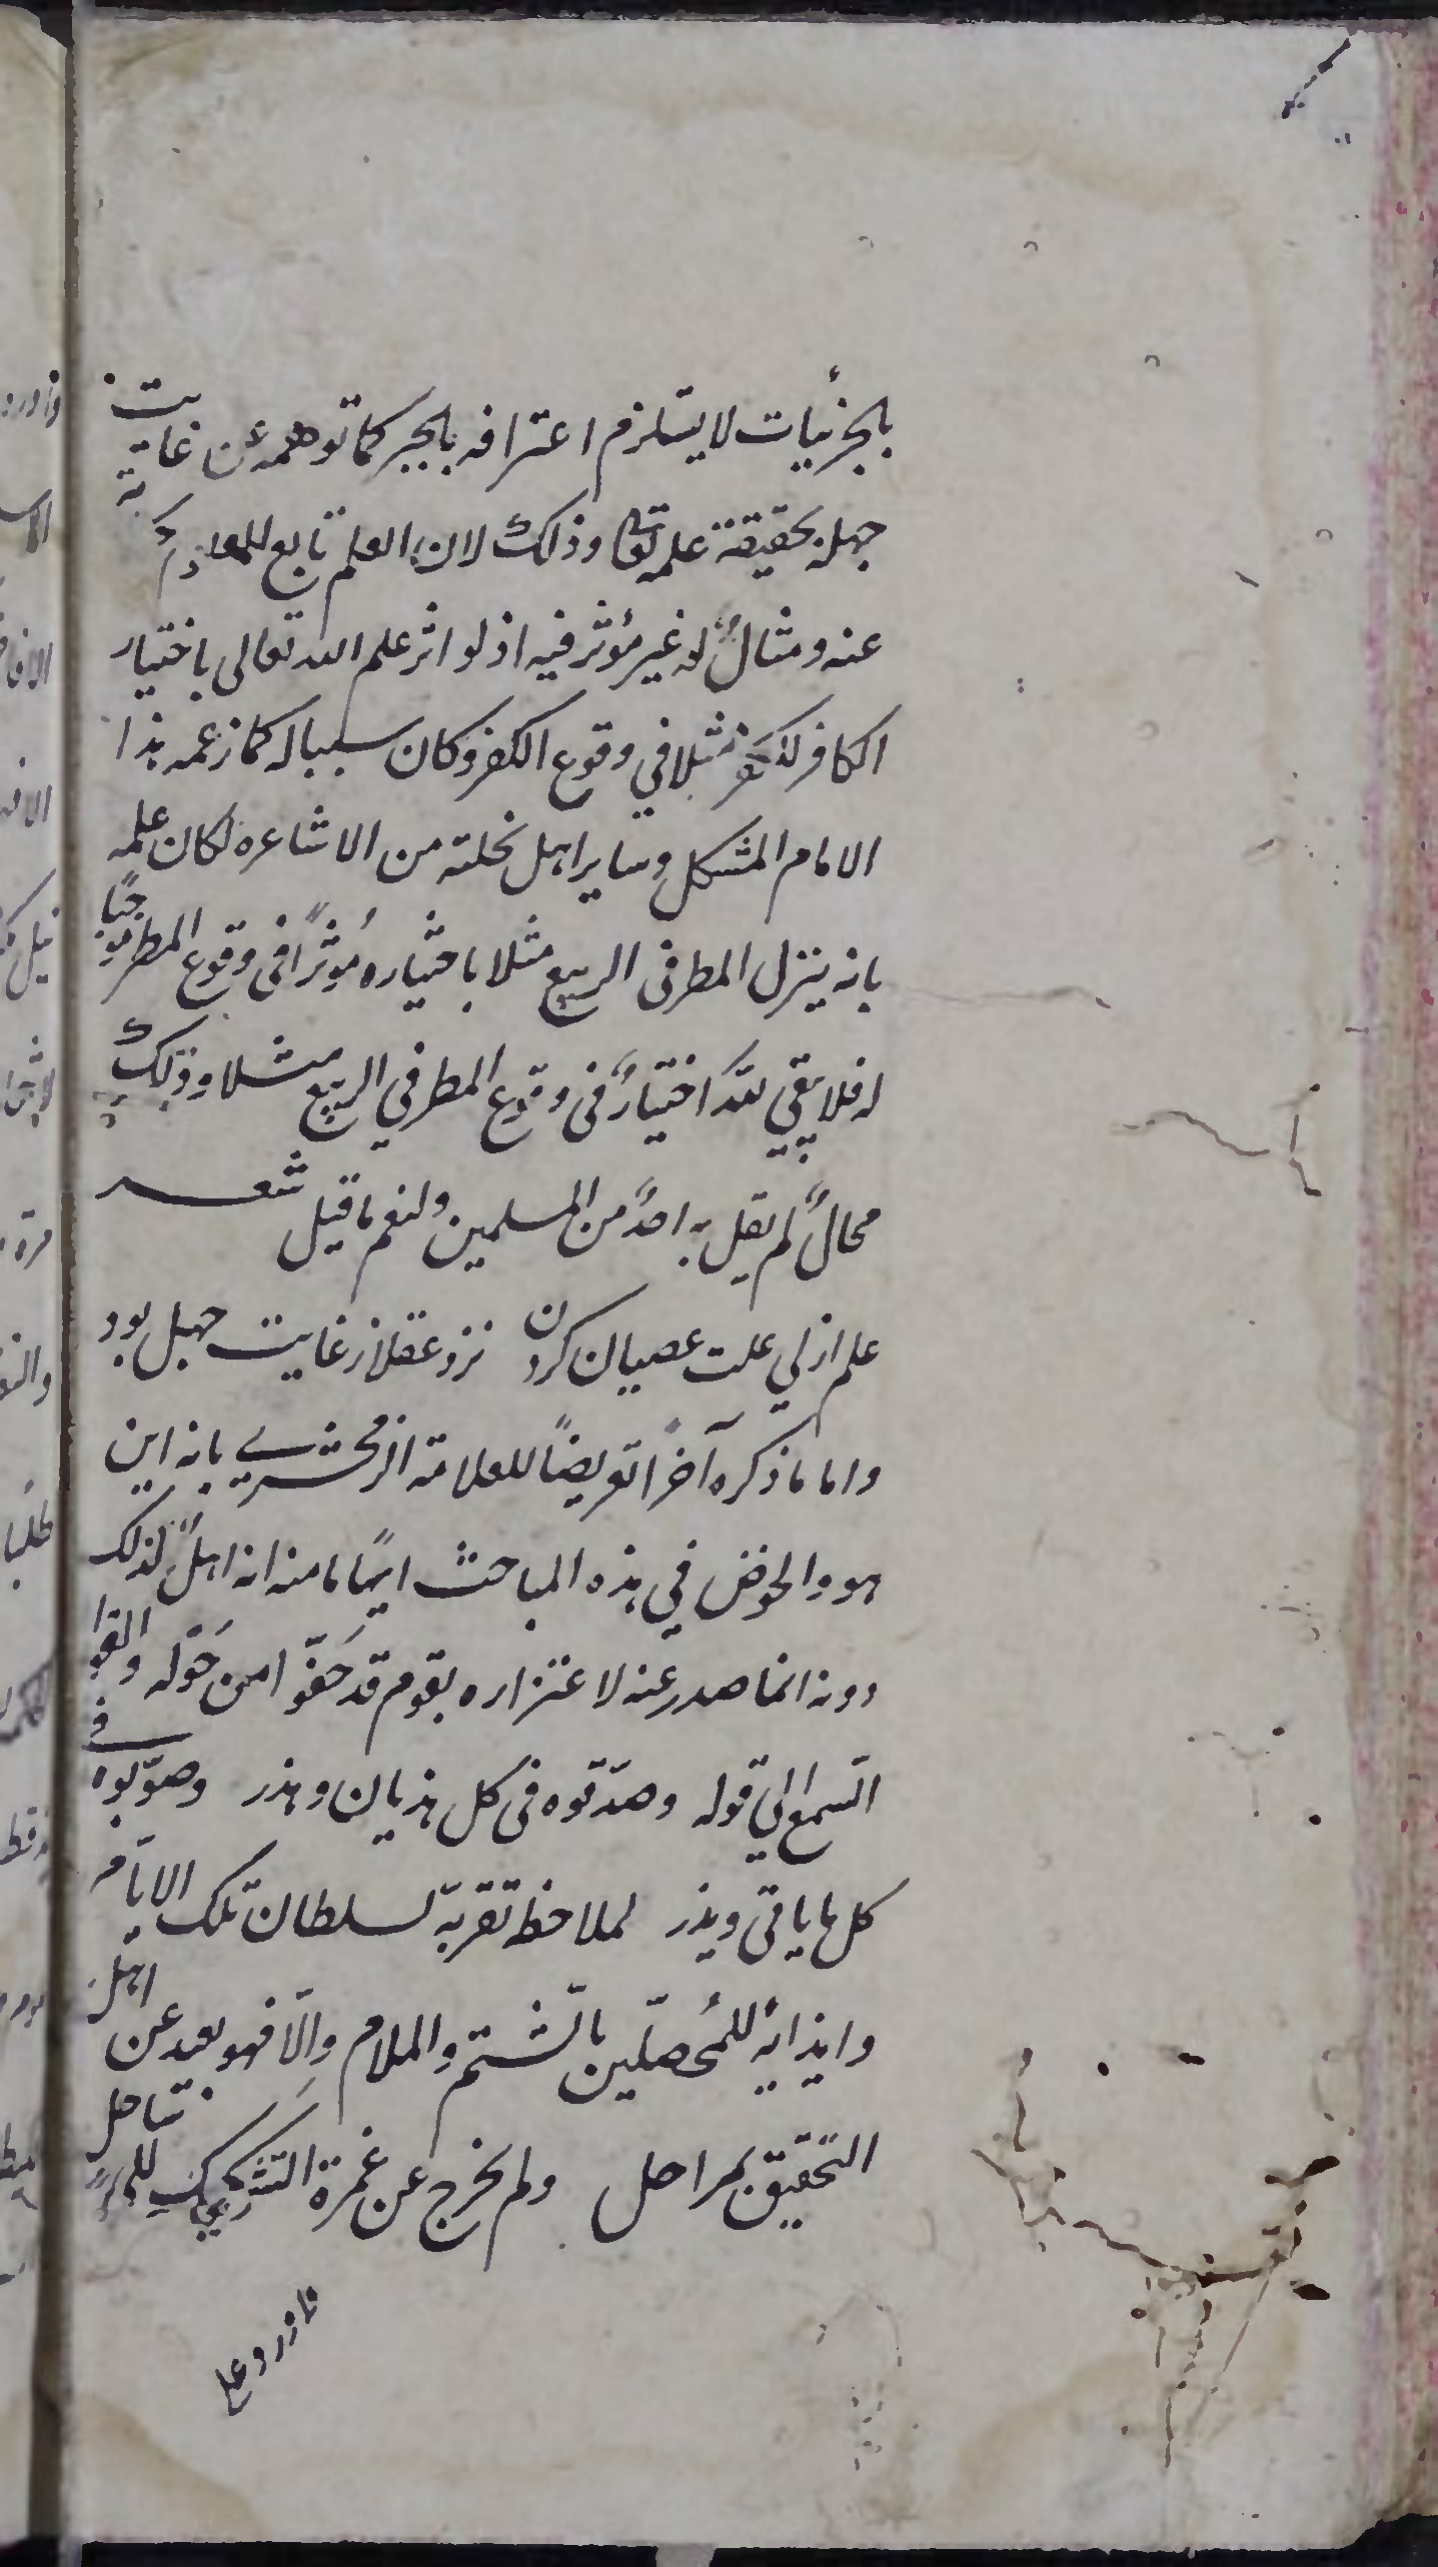 بالجزئيات لا يستلزم اعترافه بالجبر كما توهمه عن غايت
جهله بحقيقة علمه تعالى وذلك لان العلم تابع للمعلوم
عنه ومثالٌ له غير مؤثر فيه اذ لو اثر علم الله تعالى باختيار
الكافر للكفر مثلا في وقوع الكفر وكان سببا له كما زعمه هذا
الامام المشكك وساير اهل نحلته من الاشاعره لكان علمه
بانه ينزل المطر فى الربيع مثلا باختياره مُؤثرًا فى وقوع المطر موجبًا
له فلا يبقي لله اختيارٌ فى وقوع المطر في الربيع مثلا وذلك
محالٌ لم يقل به احدٌ من المسلمين ولنعم ما قيل شعر
علم ازلي علت عصيان كردن نزد عقلا ز غايت جهل بود
واما ما ذكره آخرًا تعريضًا للعلامة الزمخشري بانه اين
هو والخوض في هذه المباحث ايهامًا منه انه اهلٌ لذلك
دونه انما صدر عنه لاغتراره بقوم قد حَفّوا من حَوله والقوا
السمع الي قوله وصدّقوه فى كل هذيان وهذر وصوّبوه في
كل ما ياتى ويذر لملاحظة تقربه لسلطان تلك الايام
وايذايهٖ للمُحصّلين بالشتم والملام واِلّا فهو بعيد عن اهل
التحقيق بمراحل ولم يخرج عن غمرة التشكيك الي ساحل